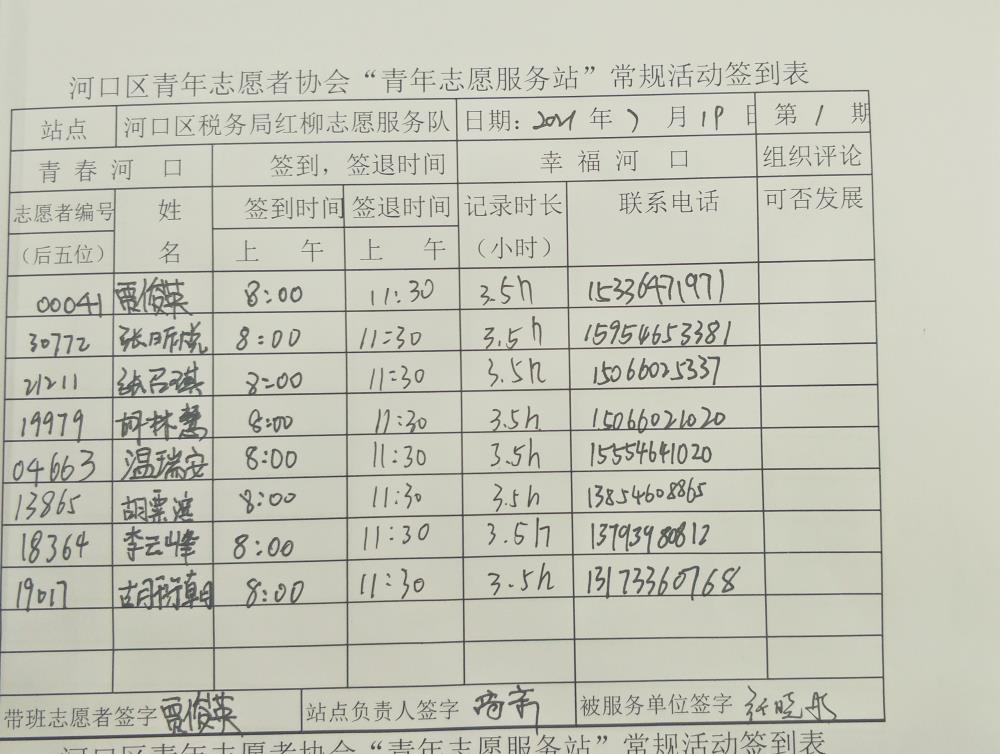 河口区青年志愿者协会“青年志愿服务站”常规活动签到表
站点 河口区税务局红柳志愿服务队 日期: 2021 年 7 月 19 日 第 1 期
青春河口 签到，签退时间 幸福河口 组织评论
志愿者编号 姓 签到时间 签退时间 记录时长 联系电话 可否发展
（后五位） 名 上午 上午 （小时）
00041 贾俊英 8:00 11:30 3.5h 15336471971
30772 张昕悦 8:00 11:30 3.5h 15954653381
21211 8:00 11:30 3.5h 15066025337
19979 胡林慧 8:00 11:30 3.5h 15066021020
04663 温瑞安 8:00 11:30 3.5h 15554641020
13865 8:00 11:30 3.5h 13854608865
18364 李云峰 8:00 11:30 3.5h 13793980812
19017 8:00 11:30 3.5h 13173360768
带班志愿者签字 贾俊英 站点负责人签字 被服务单位签字
河口区青年志愿者协会“青年志愿服务站”常规活动签到表